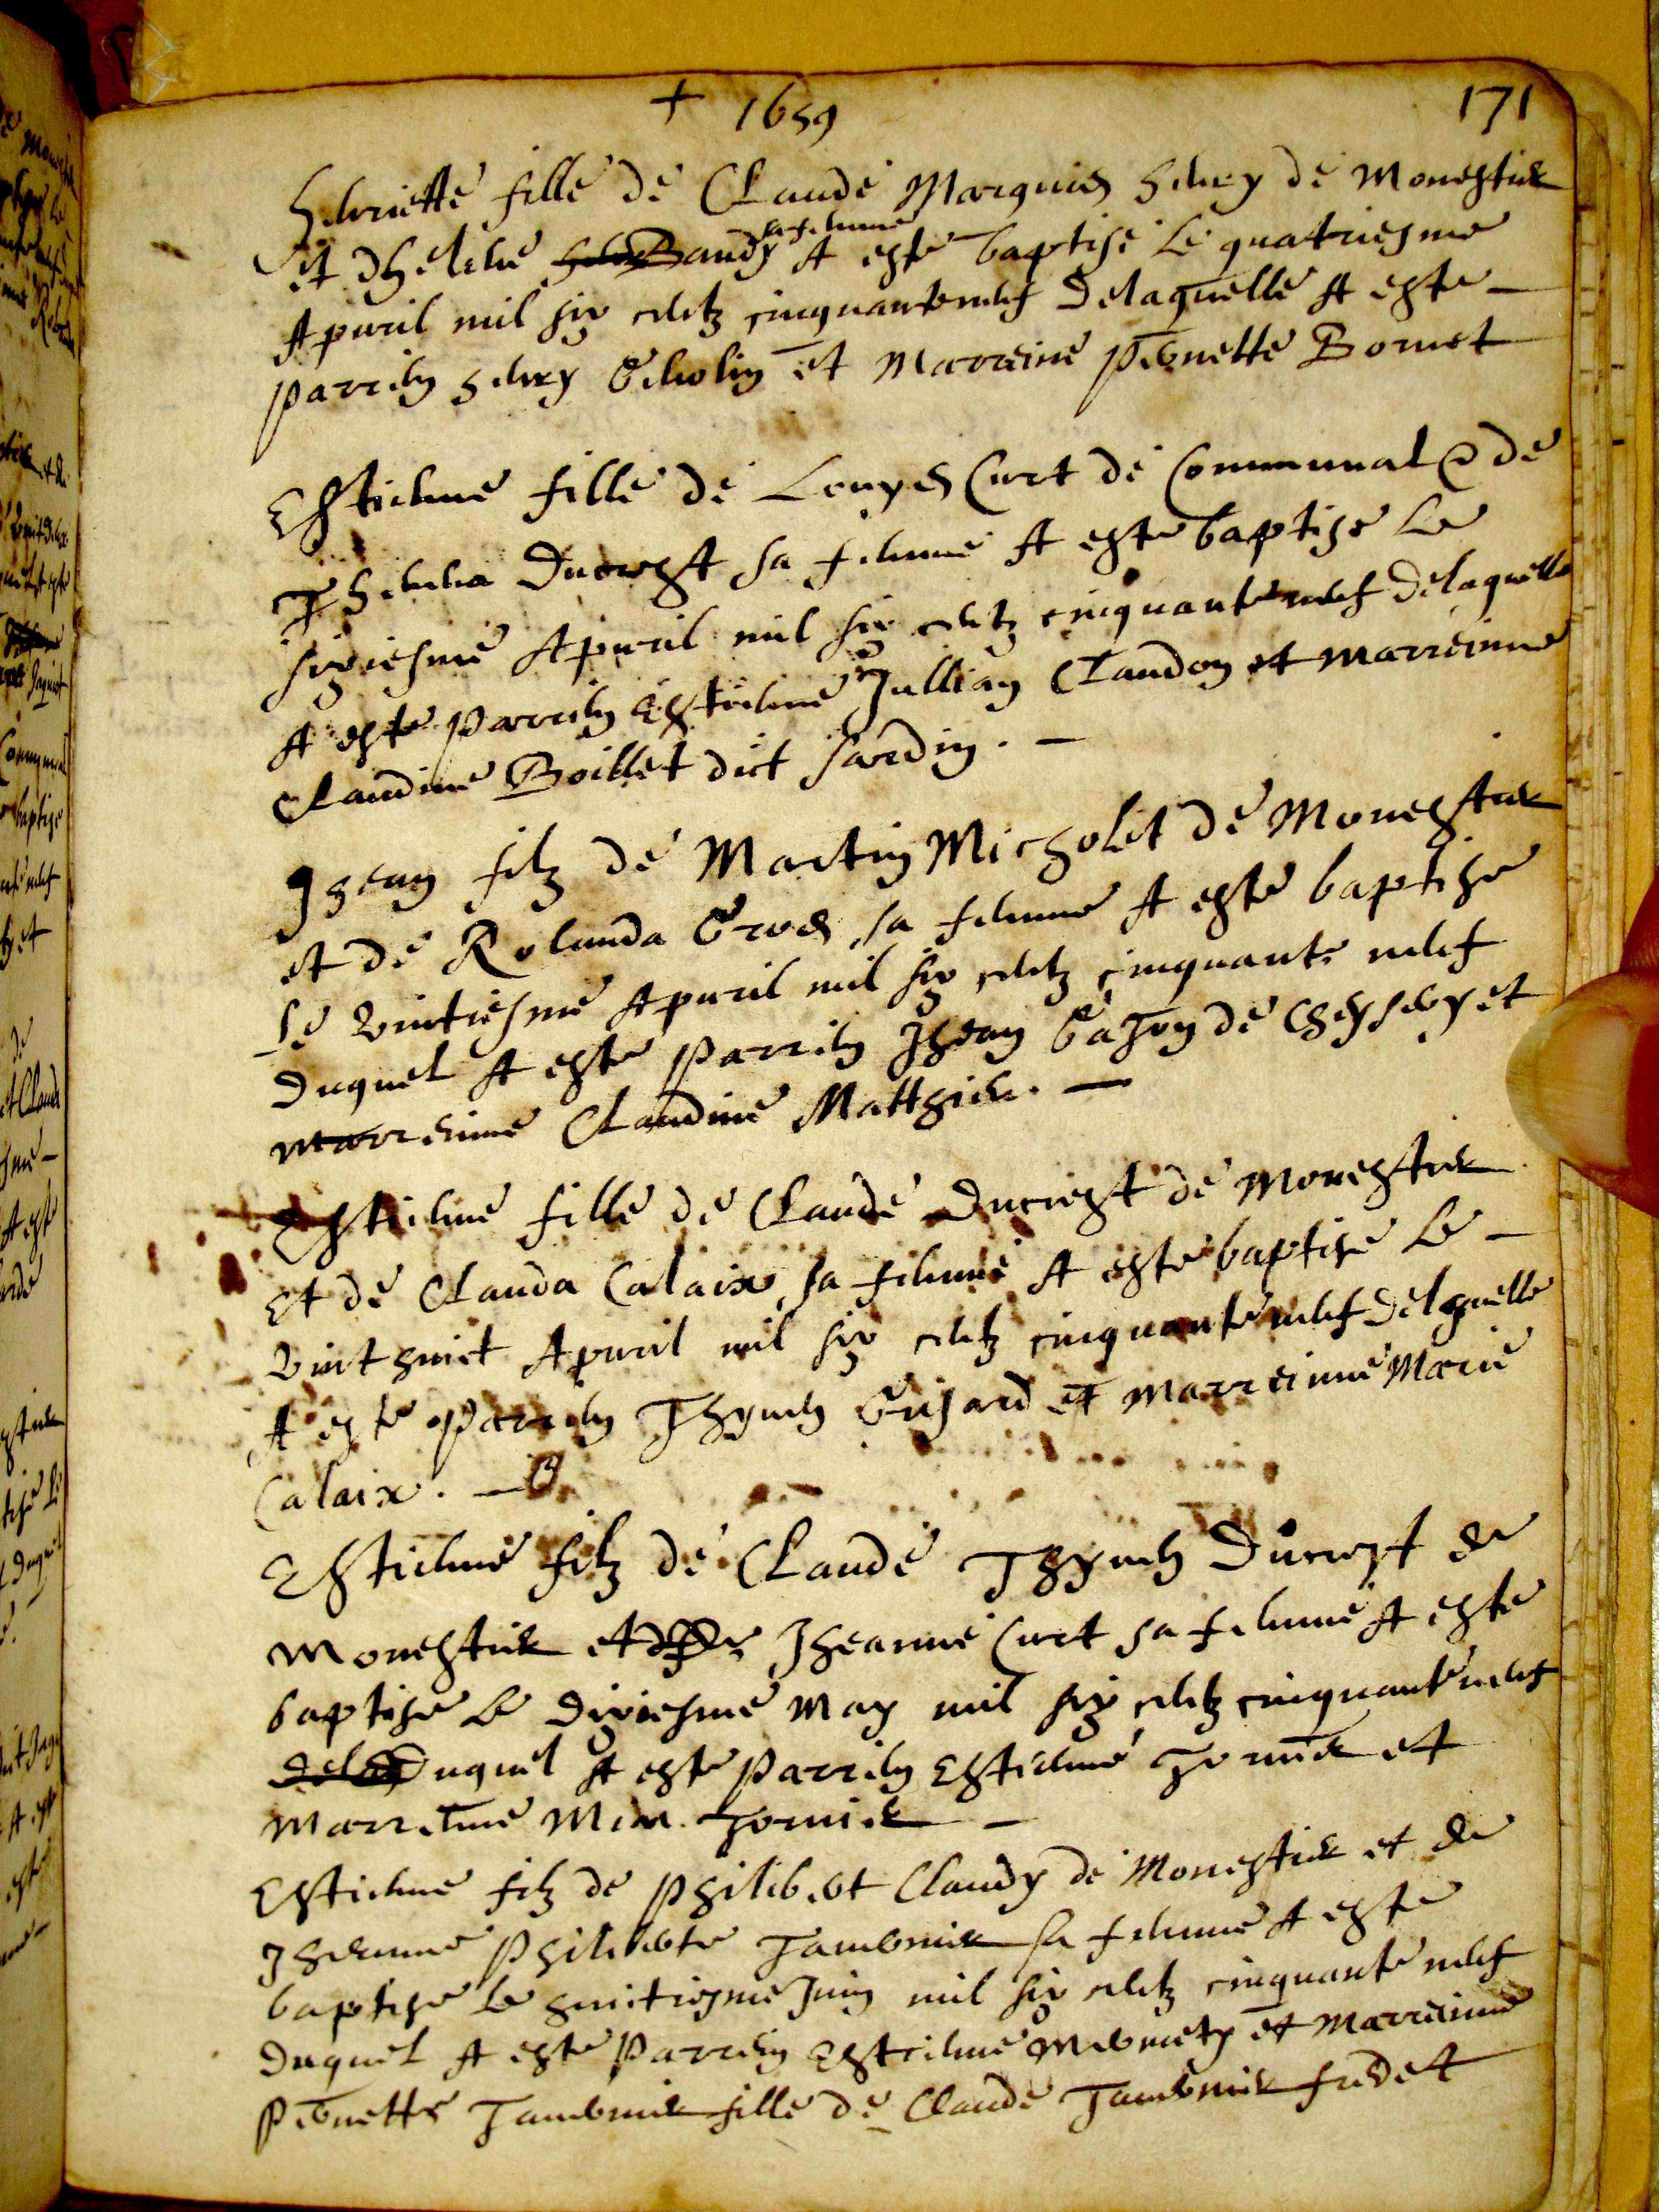 + 1659
171
Henriette fille de Claude Marquis Henry de Monestier
sa femme
et dhelene Baudy A este baptise le quatriesme
Apvril mil six centz cinquante neuf Delaquelle A este
parrein Henry et Marreine pernette Bornet
Estienne fille de Louys Curt de Communal & de
Ducrest sa femme A este baptise le
sixiesme Apvril mil six centz cinquante neuf delaquelle
A este parrein Estienne Jullian Claudon et marreinne
Claudine Boillet dict Jardin.
Jhean filz de Martin Micholet de Monestier
et de Rolanda Gros sa femme A este baptise
le vintiesme Apvril mil six centz cinquante neuf
Duquel A este parrein Jhean de et
marreinne Claudine Matthieu.
Estienne fille de Claude Ducrest de Monestier
et de Clauda Calaix sa femme A este baptise le
vint huict Apvril mil six centz cinquante neuf Delaquelle
A este parrein Thyven et marreinne Marie
Calaix.
Estienne filz de Claude Thyven Ducrest de
Monestier et de Jheanne Curt sa femme A este
baptise le dixiesme May mil six centz cinquante neuf
Duquel A este parrein Estienne Tornier et
marreine Mia. Tornier
Estienne filz de philibert Claudy de Monestier et de
Jheanne philiberte Tavernier sa femme A este
baptise le huictiesme Juin mil six centz cinquante neuf
Duquel A este parrein Estienne et marreinne
pernette Tavernier fille de Claude Tavernier